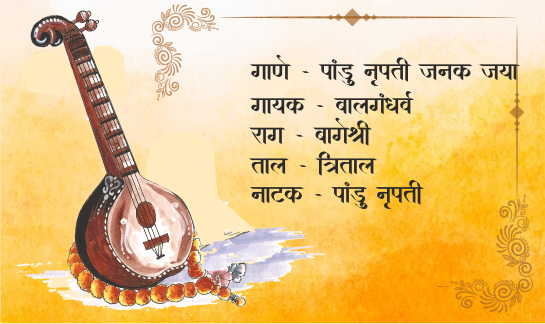 गाणे - पांडु नृपती जनक जया
गायक - बालगंधर्व
राग - बागेश्री
ताल - त्रिताल
नाटक - पांडु नृपती